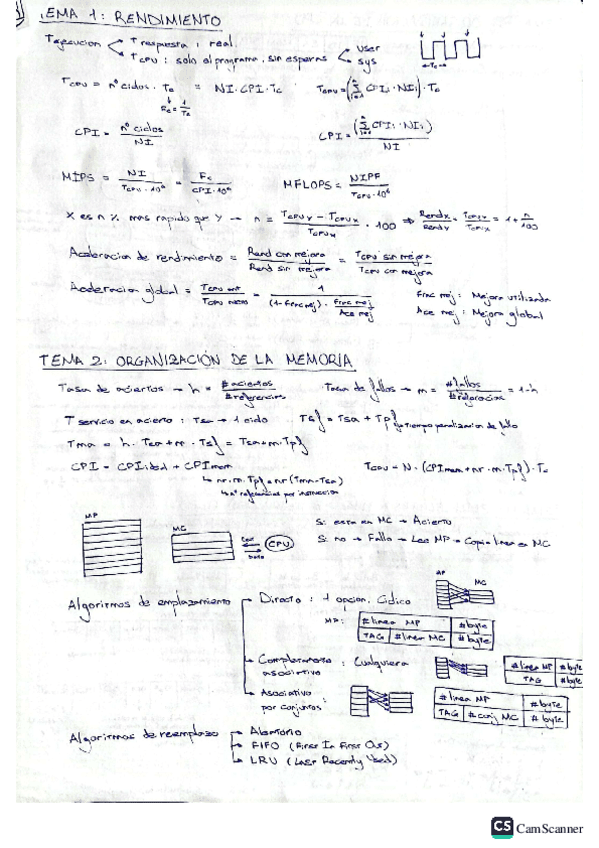 TEMA 1: RENDIMIENTO
Tejecucion < T respuesta : real.
T CPU : solo al programa, sin esperas < user
sys
Tc
TCPU = nº ciclos · Tc = NI · CPI · Tc
TCPU = (Σ CPIi · NIi) · Tc
Fc = 1/Tc
CPI = nº ciclos / NI
CPI = (Σ CPIi · NIi) / NI
MIPS = NI / TCPU · 10⁶ = Fc / CPI · 10⁶
MFLOPS = NIPF / TCPU · 10⁶
X es n % mas rapido que Y → n = TCPUY − TCPUX / TCPUX · 100 ⇒ RendX / RendY = TCPUY / TCPUX = 1 + n/100
Aceleracion de rendimiento = Rend con mejora / Rend sin mejora = TCPU sin mejora / TCPU con mejora
Aceleracion global = TCPU ant / TCPU nuevo = 1 / (1-Frac mej) · Frac mej / Ace mej
Frac mej : Mejora utilizada
Ace mej : Mejora global
TEMA 2: ORGANIZACIÓN DE LA MEMORIA
Tasa de aciertos → h = #aciertos / #referencias
Tasa de fallos → m = #fallos / #referencias = 1-h
T servicio en acierto : Tsa → 1 ciclo
Tsf = Tsa + Tpf
↳ tiempo penalizacion de fallo
Tma = h · Tsa + m · Tsf = Tsa + m · Tpf
CPI = CPI ideal + CPI mem
TCPU = N · (CPI mem + nr · m · Tpf) · Tc
↳ nr · m · Tpf = nr (Tma - Tsa)
↳ nº referencias por instrucción
MP
MC
CPU
Dato
Si esta en MC → Acierto
Si no → Fallo → Lee MP → Copia linea en MC
Algoritmos de emplazamiento
Directo : 1 opcion. Ciclico
MC
MP:
# linea MP | # byte
TAG | # linea MC | # byte
Completamente asociativo : Cualquiera
# linea MP | # byte
TAG | # byte
Asociativo por conjuntos :
# linea MP | # byte
TAG | # conj MC | # byte
Algoritmos de reemplazo
Aleatorio
FIFO (First In First Out)
LRU (Last Recently Used)
CS CamScanner